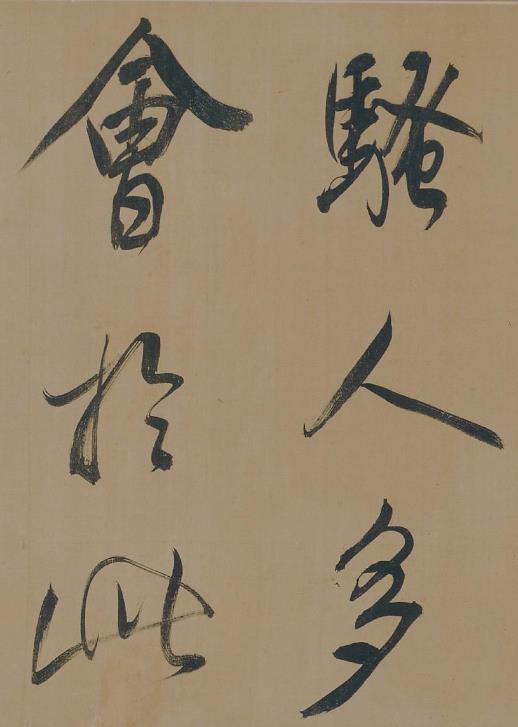 騷人多
會於此